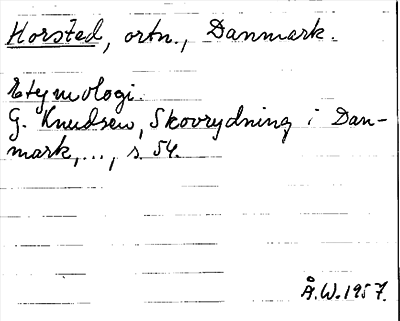 Horsted, ortn., Danmark.
Etymologi.
G. Knudsen, Skovrydning i Dan-
mark,..., s. 54.
Å.W.1957.